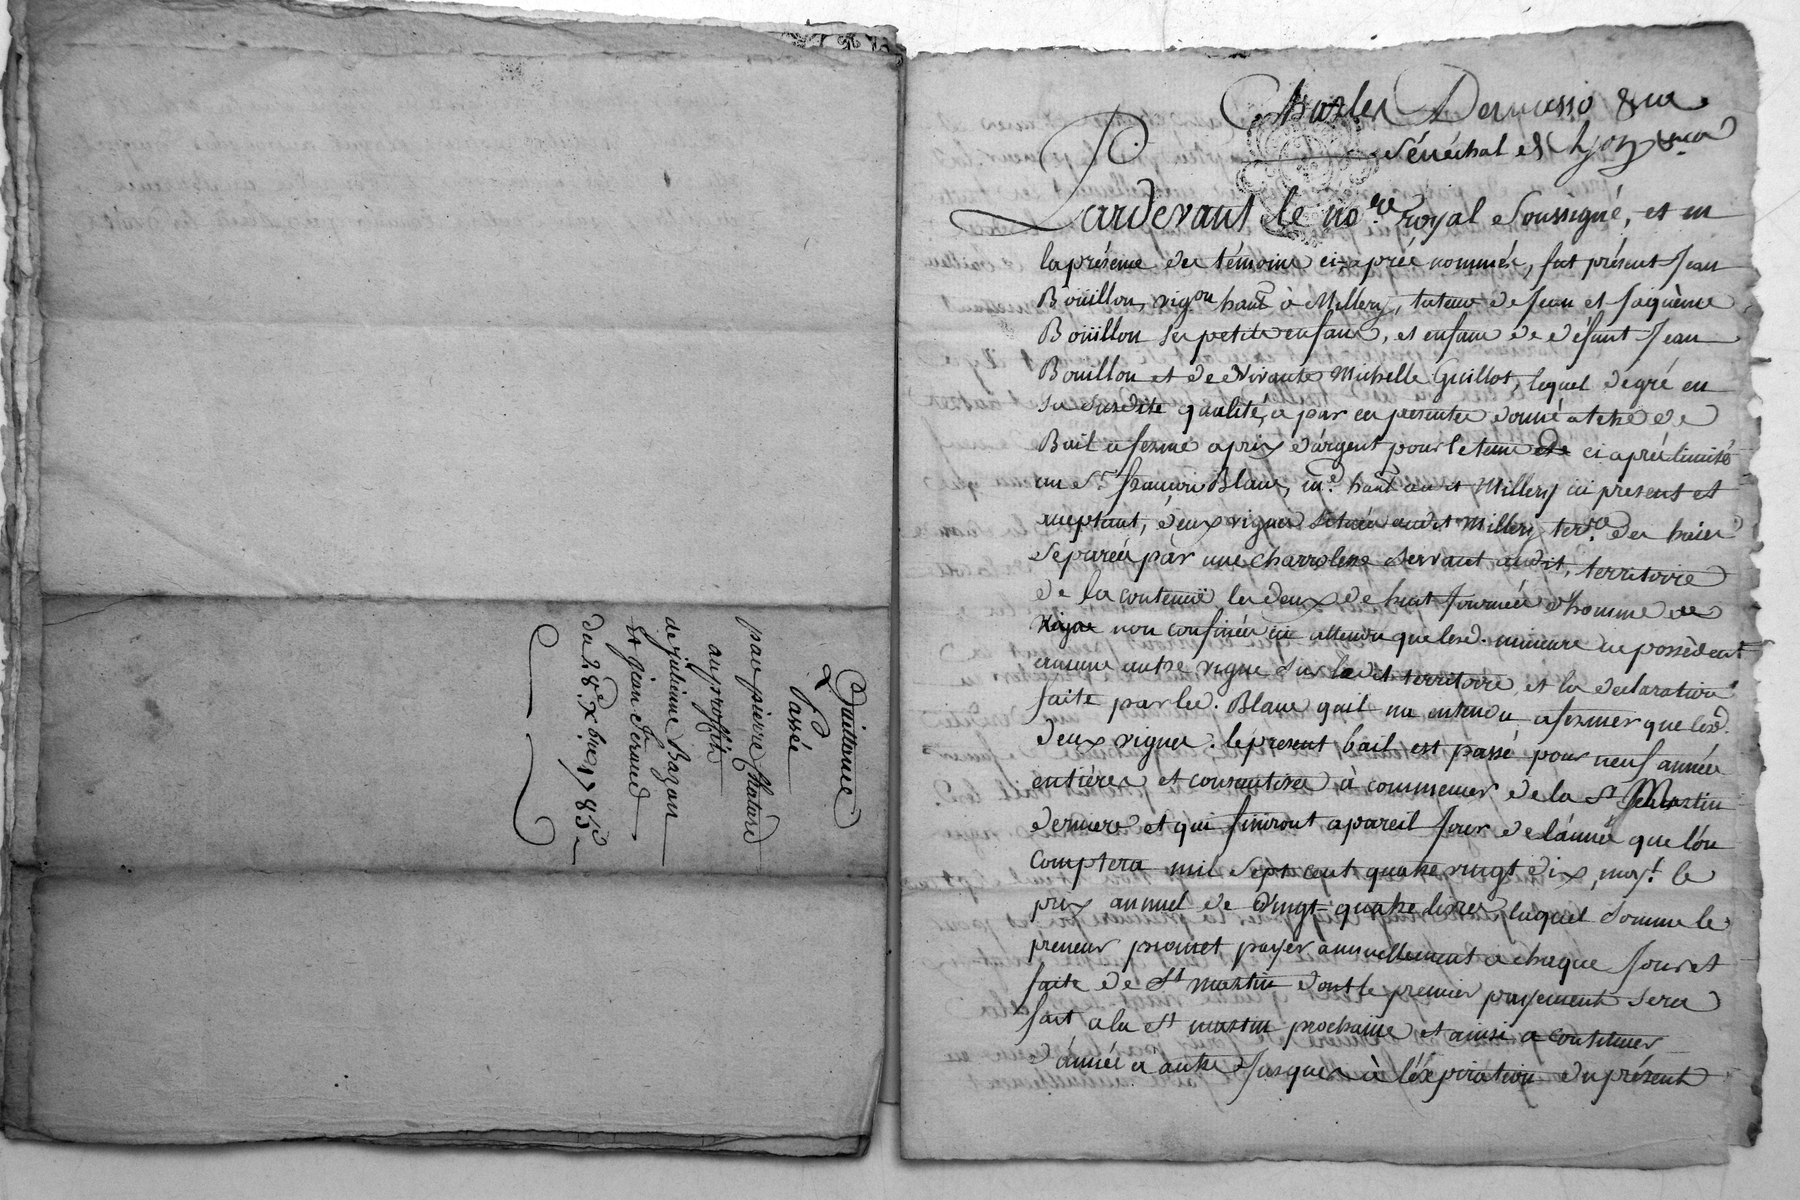 Quittance
Passée
par pierre Chatard
au proffit
de juliene Bazon
et jean
du 28e Xbre 1785
Charles &ca
Sénéchal de Lyon &ca
Pardevant le nore royal soussigné, et en
la présence des témoins ci-après nommés, fut présent Jean
Boüillon, vigon hant à Millery, tuteur de Jean et Jaquème
Boüillon ses petits enfans, et enfans de défunt Jean
Bouillon et de vivante Michelle Guillot, lequel de gré en
sa susdite qualité, a par ces presentes donné a titre de
Bail a ferme a prix d'argent pour le tems et ci après limité
au Sr françois Blanc, md hant audit Millery ici present et
acceptant, deux vignes situées audit Millery terre des
separées par une charroliere servant audit territoire
de la contenue les deux de huit journées d'homme de
vigne non confinées ici attendu que lesd. mineurs ne possèdent
aucune autre vigne sur ledit territoire et la declaration
faite par led. Blanc qu'il n'a entendu afermer que lesd.
deux vignes. le present bail est passé pour neuf années
entiéres et consecutives à commencer de la St Martin
derniere et qui finiront a pareil jour de l'année que l'on
comptera mil sept cent quatre vingt dix, moyt le
prix annuel de vingt-quatre livres, laquel somme le
preneur promet payer annuellement a chaque jour et
faite de St martin dont le premier payement sera
fait a la St martin prochaine et ainsi a continuer
d'année a autre jusques à l'expiration du présent